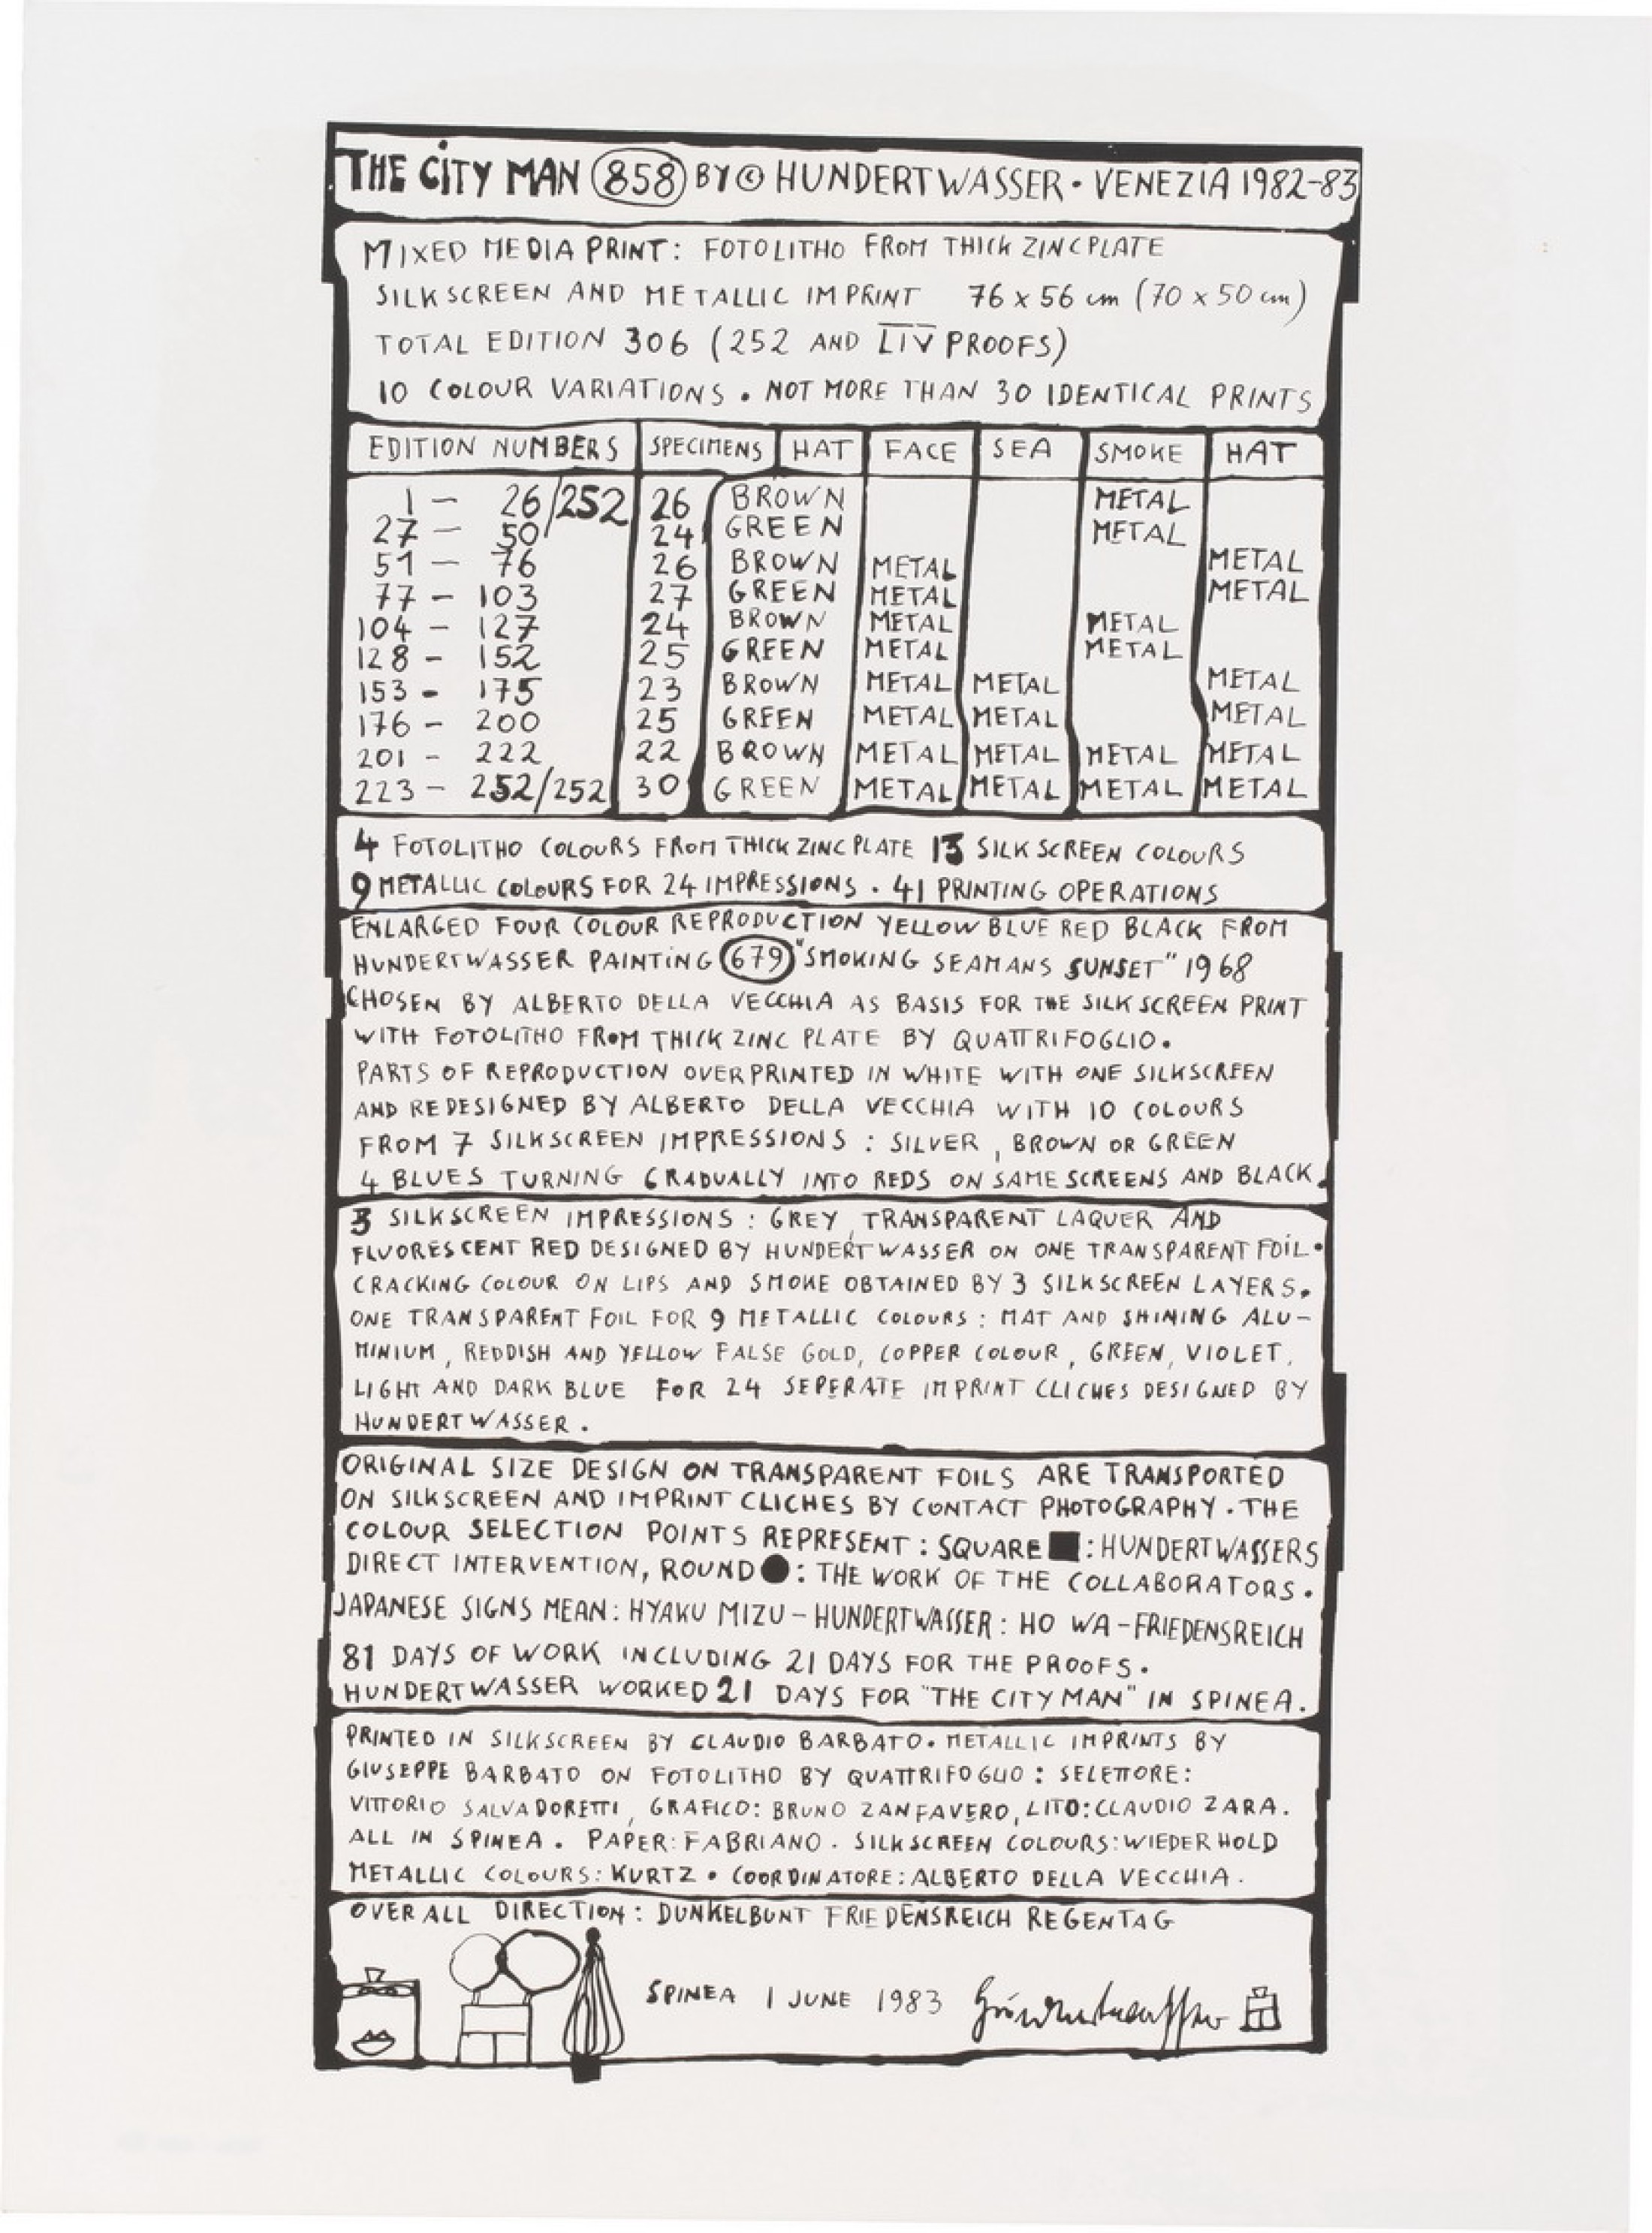 THE CITY MAN 858 BY © HUNDERTWASSER · VENEZIA 1982-83
MIXED MEDIA PRINT: FOTOLITHO FROM THICK ZINCPLATE
SILKSCREEN AND METALLIC IMPRINT 76 x 56 cm (70 x 50 cm)
TOTAL EDITION 306 (252 AND LIV PROOFS)
10 COLOUR VARIATIONS . NOT MORE THAN 30 IDENTICAL PRINTS
EDITION NUMBERS SPECIMENS HAT FACE SEA SMOKE HAT
1 - 26/252 26 BROWN METAL
27 - 50 24 GREEN METAL
51 - 76 26 BROWN METAL METAL
77 - 103 27 GREEN METAL METAL
104 - 127 24 BROWN METAL METAL
128 - 152 25 GREEN METAL METAL
153 - 175 23 BROWN METAL METAL METAL
176 - 200 25 GREEN METAL METAL METAL
201 - 222 22 BROWN METAL METAL METAL METAL
223 - 252/252 30 GREEN METAL METAL METAL METAL
4 FOTOLITHO COLOURS FROM THICK ZINC PLATE 13 SILKSCREEN COLOURS
9 METALLIC COLOURS FOR 24 IMPRESSIONS . 41 PRINTING OPERATIONS
ENLARGED FOUR COLOUR REPRODUCTION YELLOW BLUE RED BLACK FROM
HUNDERTWASSER PAINTING 679 "SMOKING SEAMANS SUNSET" 1968
CHOSEN BY ALBERTO DELLA VECCHIA AS BASIS FOR THE SILKSCREEN PRINT
WITH FOTOLITHO FROM THICK ZINC PLATE BY QUATTRIFOGLIO.
PARTS OF REPRODUCTION OVERPRINTED IN WHITE WITH ONE SILKSCREEN
AND REDESIGNED BY ALBERTO DELLA VECCHIA WITH 10 COLOURS
FROM 7 SILKSCREEN IMPRESSIONS : SILVER , BROWN OR GREEN
4 BLUES TURNING GRADUALLY INTO REDS ON SAME SCREENS AND BLACK.
3 SILKSCREEN IMPRESSIONS : GREY, TRANSPARENT LAQUER AND
FLUORESCENT RED DESIGNED BY HUNDERTWASSER ON ONE TRANSPARENT FOIL.
CRACKING COLOUR ON LIPS AND SMOKE OBTAINED BY 3 SILKSCREEN LAYERS.
ONE TRANSPARENT FOIL FOR 9 METALLIC COLOURS : MAT AND SHINING ALU-
MINIUM, REDDISH AND YELLOW FALSE GOLD, COPPER COLOUR, GREEN, VIOLET,
LIGHT AND DARK BLUE FOR 24 SEPERATE IMPRINT CLICHES DESIGNED BY
HUNDERTWASSER .
ORIGINAL SIZE DESIGN ON TRANSPARENT FOILS ARE TRANSPORTED
ON SILKSCREEN AND IMPRINT CLICHES BY CONTACT PHOTOGRAPHY . THE
COLOUR SELECTION POINTS REPRESENT : SQUARE ■ : HUNDERTWASSERS
DIRECT INTERVENTION, ROUND ● : THE WORK OF THE COLLABORATORS .
JAPANESE SIGNS MEAN : HYAKU MIZU - HUNDERTWASSER : HO WA - FRIEDENSREICH
81 DAYS OF WORK INCLUDING 21 DAYS FOR THE PROOFS .
HUNDERTWASSER WORKED 21 DAYS FOR "THE CITY MAN" IN SPINEA .
PRINTED IN SILKSCREEN BY CLAUDIO BARBATO. METALLIC IMPRINTS BY
GIUSEPPE BARBATO ON FOTOLITHO BY QUATTRIFOGLIO : SELETTORE :
VITTORIO SALVADORETTI, GRAFICO : BRUNO ZANFAVERO, LITO : CLAUDIO ZARA .
ALL IN SPINEA . PAPER : FABRIANO . SILKSCREEN COLOURS : WIEDERHOLD
METALLIC COLOURS : KURTZ . COORDINATORE : ALBERTO DELLA VECCHIA .
OVER ALL DIRECTION : DUNKELBUNT FRIEDENSREICH REGENTAG
SPINEA 1 JUNE 1983